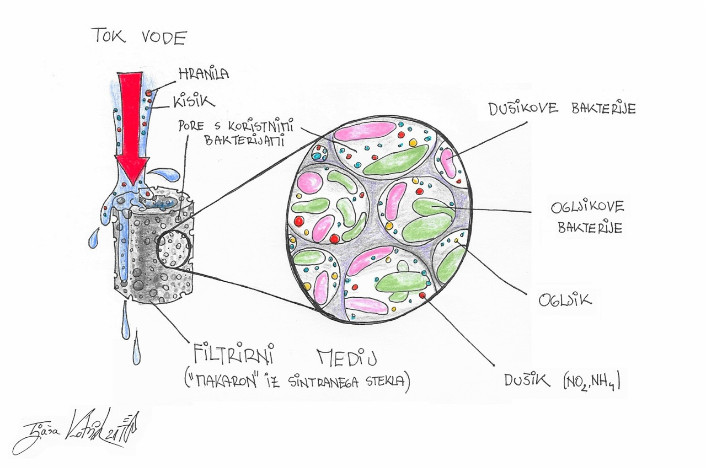 TOK VODE
HRANILA
KISIK
PORE S KORISTNIMI
BAKTERIJAMI
DUŠIKOVE BAKTERIJE
OGLJIKOVE
BAKTERIJE
OGLJIK
DUŠIK (NO₂, NH₄)
FILTRIRNI MEDIJ
("MAKARON" IZ SINTRANEGA STEKLA)
Tjaša